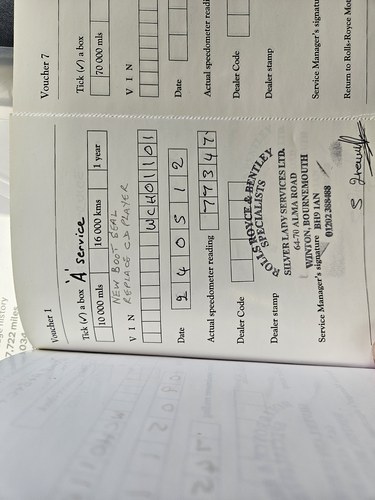 Voucher 1
'A' Service
Tick (✓) a box
10 000 mls 16 000 kms 1 year
NEW BOOT SEAL
REPLACE CD PLAYER
V I N
W C H 0 1 1 0 1
Date
2 4 0 5 1 2
Actual speedometer reading
7 7 3 4 7
Dealer Code
Dealer stamp
ROLLS ROYCE & BENTLEY
SPECIALISTS
SILVER LADY SERVICES LTD.
64-70 ALMA ROAD
WINTON, BOURNEMOUTH
BH9 1AN
01202 388488
Service Manager's signature
Voucher 7
Tick (✓) a box
70 000 mls
V I N
Date
Actual speedometer reading
Dealer Code
Dealer stamp
Service Manager's signatu
Return to Rolls-Royce Mot
history
7,722 miles